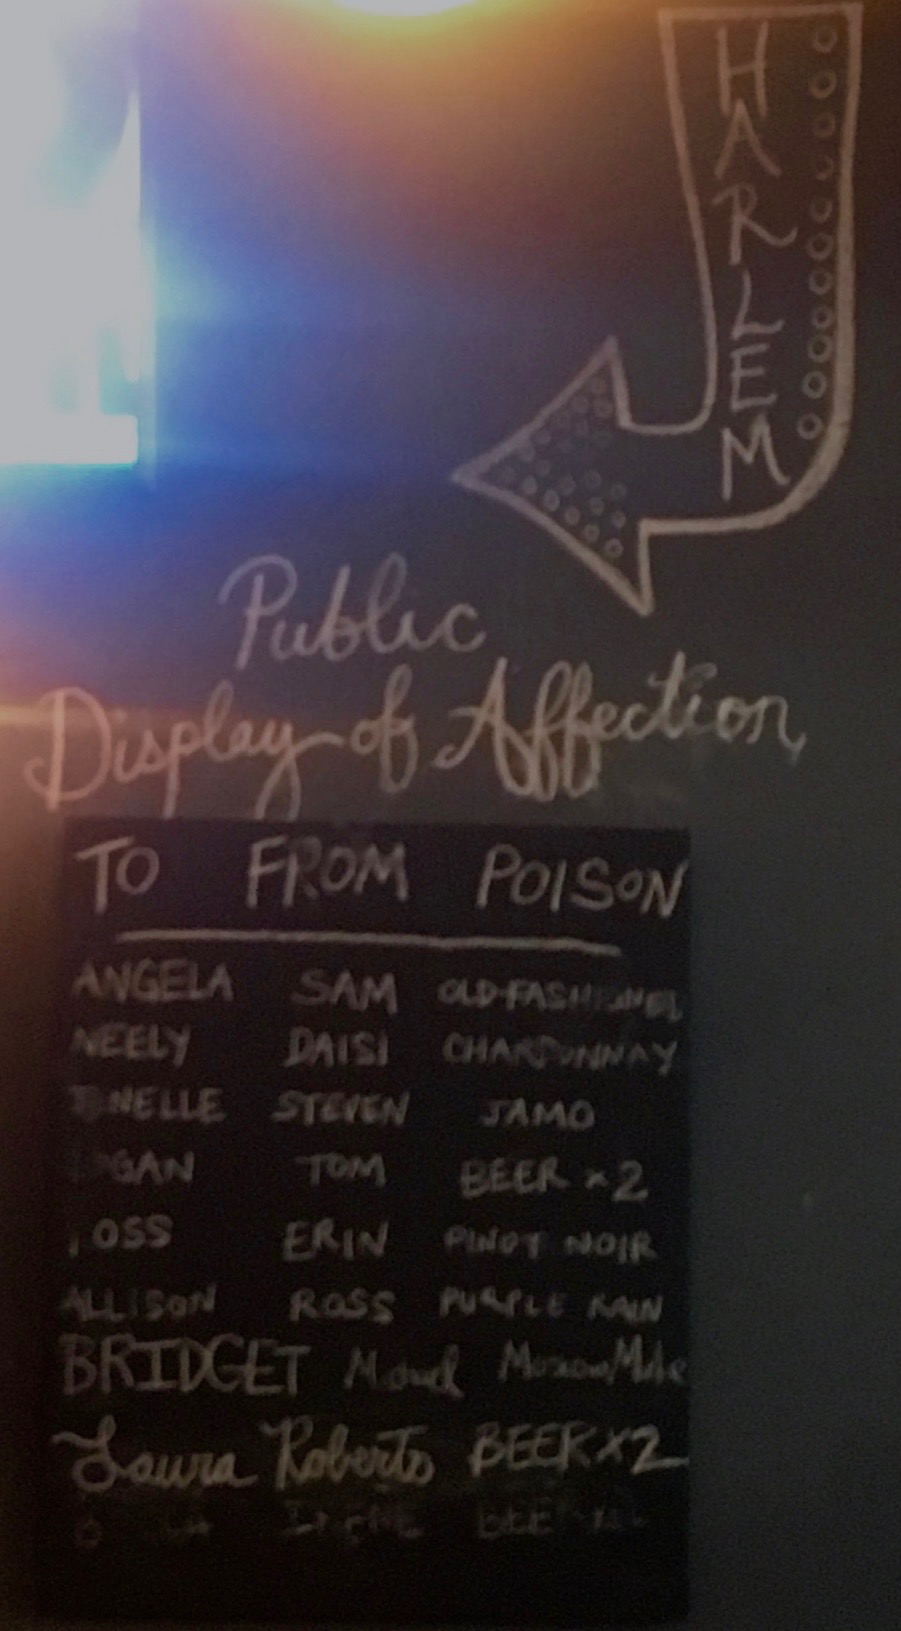 HARLEM
Public
Display of Affection
TO FROM POISON
ANGELA SAM OLD-FASHIONED
NEELY DAISI CHARDONNAY
STEVEN JAMO
TOM BEER x2
ERIN PINOT NOIR
ALLISON ROSS PURPLE RAIN
BRIDGET Moscow Mule
Laura Roberto BEER X2